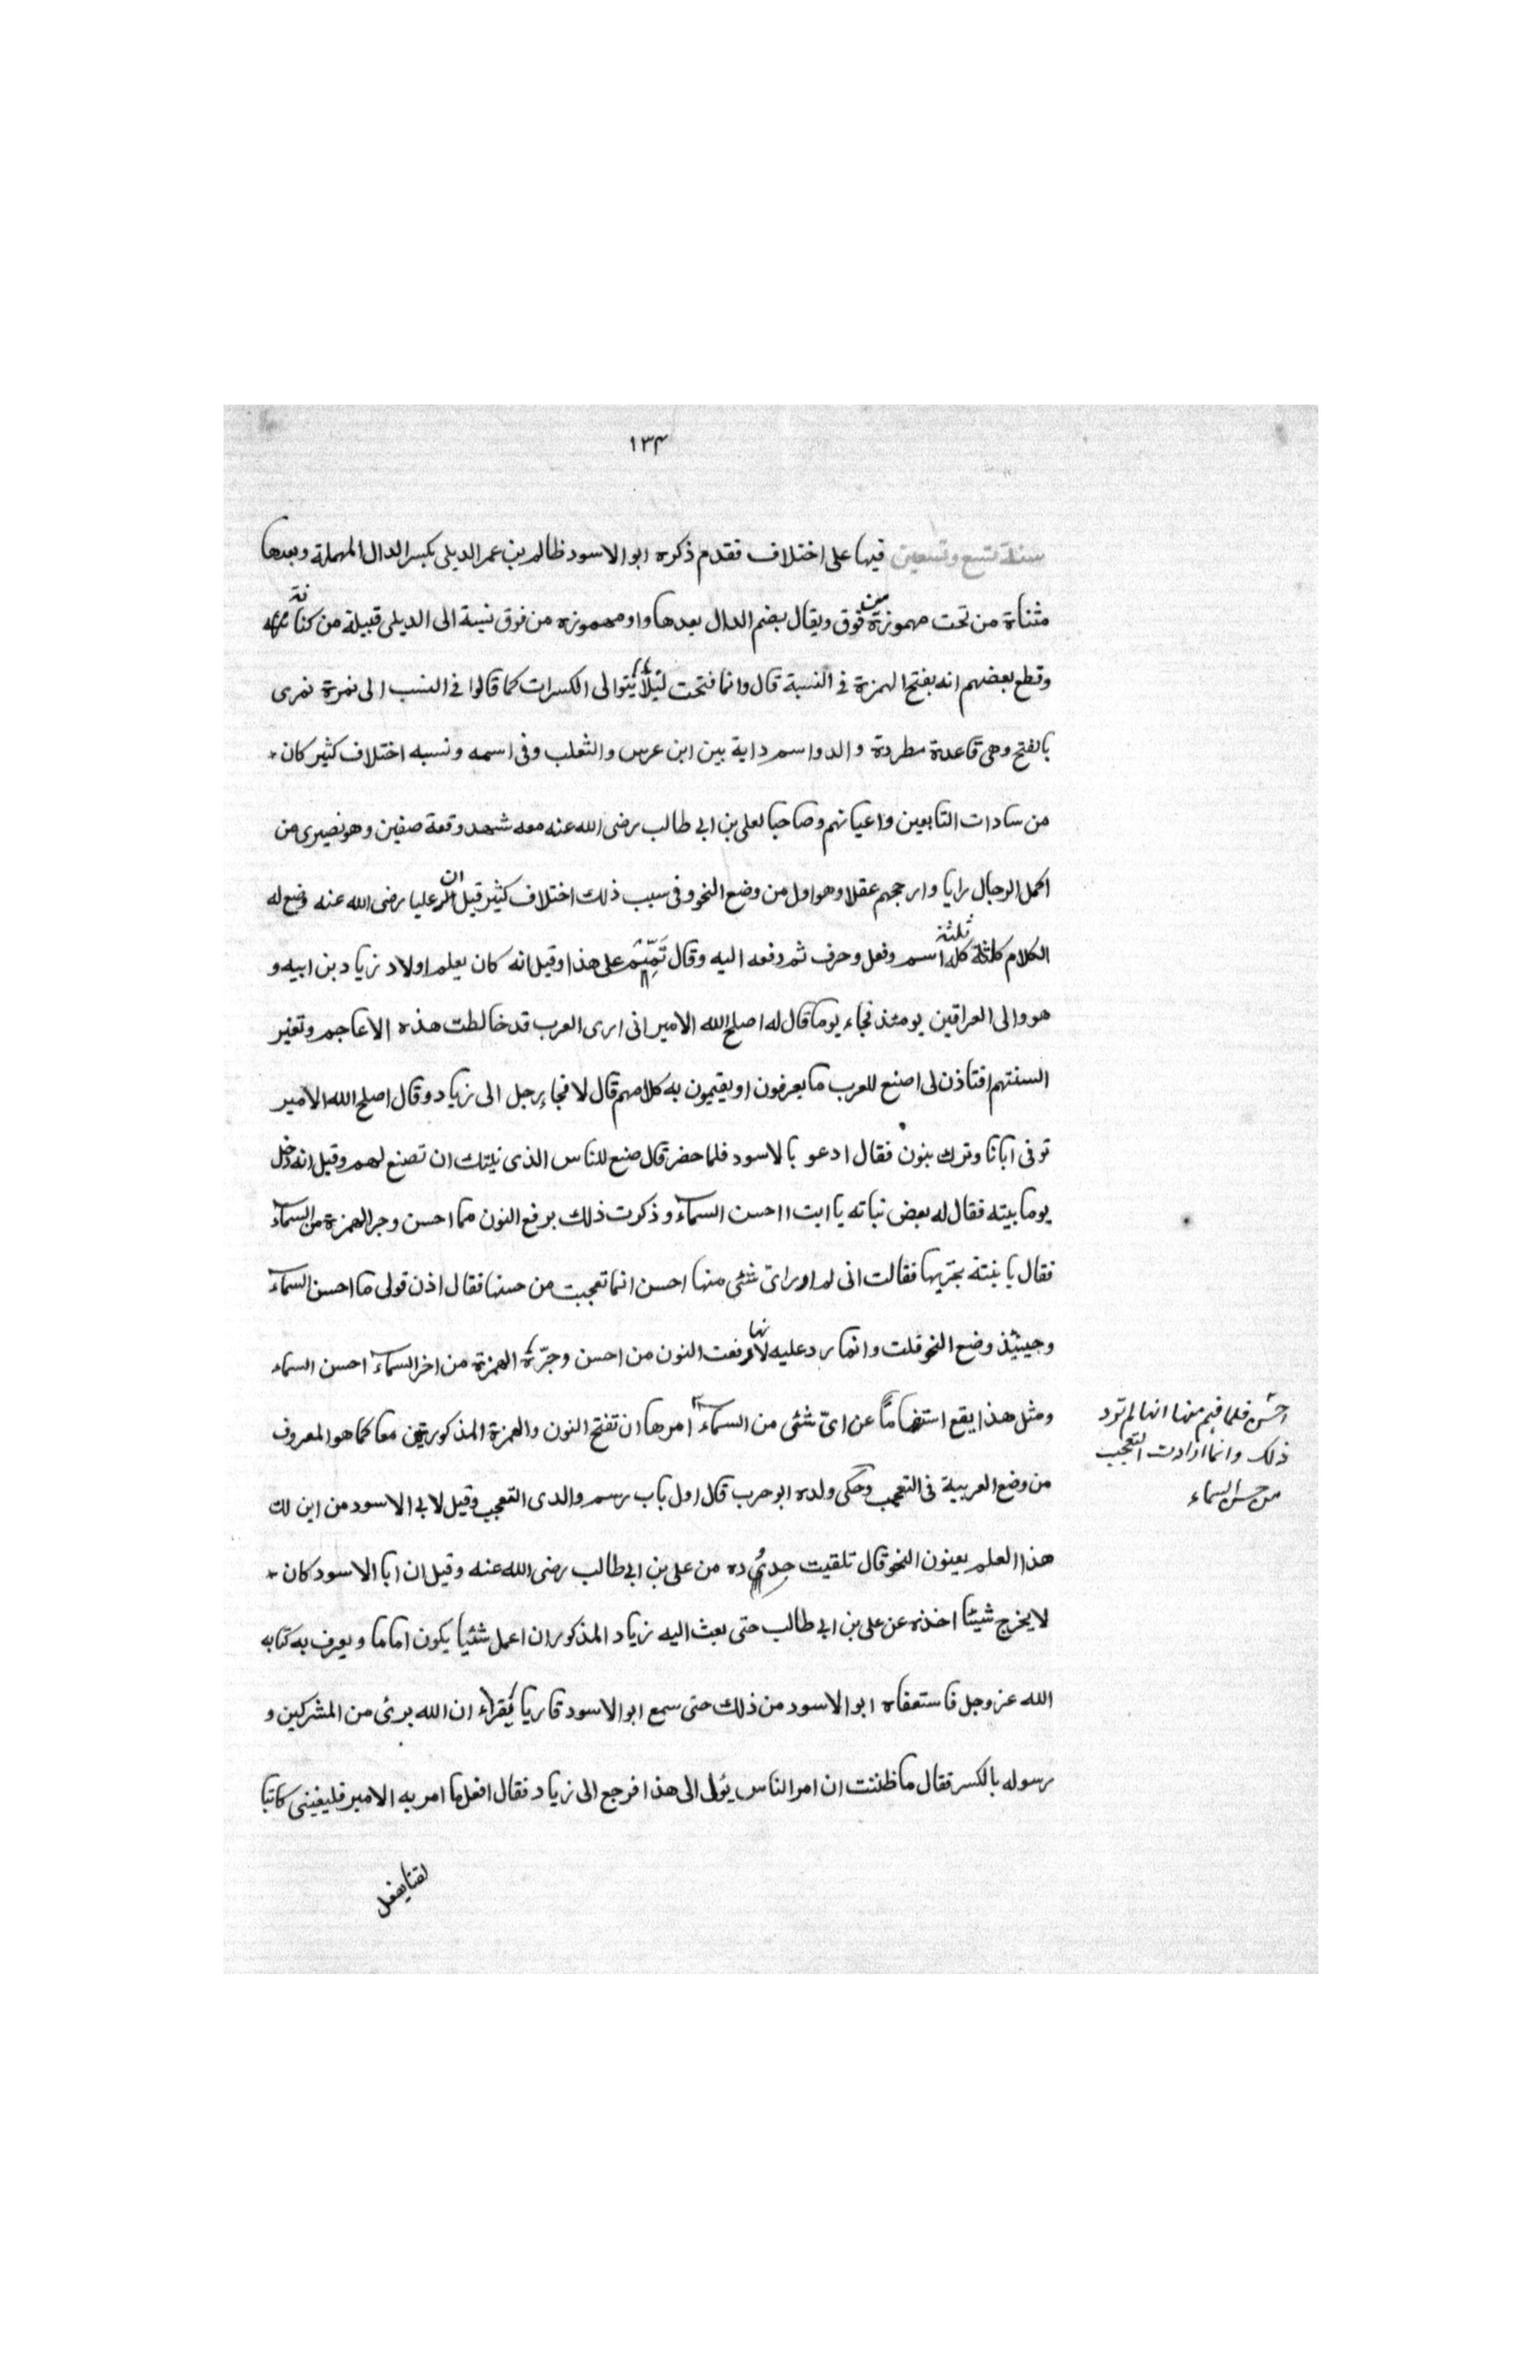 ١٣٤
سنة تسع وتسعين فيها على اختلاف فقدم ذكره ابو الاسود ظالم بن عمر الديلى بكسر الدال المهملة وبعدها
مثناة من تحت مهموزة من فوق ويقال بضم الدال بعدها واو مهموزه من فوق نسبة الى الديلى قبيلة من كنانة
وقطع بعضهم انه بفتح الهمزة فى النسبة قال وانما فتحت لئلا يتوالى الكسرات كما قالوا فى النسب الى نمرة نمرى
بالفتح وهى قاعدة مطردة والدوا اسم دابة بين ابن عرس والثعلب وفى اسمه ونسبه اختلاف كثير كان
من سادات التابعين واعيانهم وصاحبا لعلى بن ابى طالب رضى الله عنه معه شهد وقعة صفين وهو نصيرى من
اكمل الرجال رايا وارجحهم عقلا وهو اول من وضع النحو وفى سبب ذلك اختلاف كثير قيل ان عليا رضى الله عنه وضع له
الكلام كله ثلثة اسم وفعل وحرف ثم دفعه اليه وقال تمم على هذا وقيل انه كان يعلم اولاد زياد بن ابيه و
هو والى العراقين يومئذ فجاء يوما قال له اصلح الله الامير انى ارى العرب قد خالطت هذه الاعاجم وتغير
السنتهم افتاذن لى اصنع للعرب ما يعرفون او يقيمون به كلامهم قال لا فجاء رجل الى زياد وقال اصلح الله الامير
توفى ابانا وترك بنون فقال ادعو بالاسود فلما حضر قال صنع للناس الذى نيلتك ان تصنع لهم وقيل انه دخل
يوما بيته فقال له بعض نباته يا ابت ااحسن السماء وذكرت ذلك برفع النون مما احسن وجر الهمزة من السماء
فقال يا بنته نجريها فقالت انى لم ارد اىّ شئى منها احسن انما تعجبت من حسنها فقال اذن قولى ما احسن السماء
وحينئذ وضع النحو قلت وانما رد عليه لانها رفعت النون من احسن وجرّة الهمزة من اخر السماء احسن السماء
ومثل هذا يقع استفهاماً عن اىّ شئى من السماء امرها ان تفتح النون والهمزة المذكورتين معا كما هو المعروف
احسن فلما فهم منها انها لم ترد
ذلك وانما ارادت التعجب
من حسن السماء
من وضع العربية فى التعجب وحكى ولده ابو حرب قال اول باب رسم والدى التعجب وقيل لابى الاسود من اين لك
هذا العلم يعنون النحو قال تلقيت حدوده من على بن ابى طالب رضى الله عنه وقيل ان ابا الاسود كان
لا يخرج شيئا اخذه عن على بن ابى طالب حتى بعث اليه زياد المذكور ان اعمل شئيا يكون اماما ويعرف به كتابه
الله عز وجل فاستعفاه ابو الاسود من ذلك حتى سمع ابو الاسود قاريا يقراء ان الله برئ من المشركين و
رسوله بالكسر فقال ما ظننت ان امر الناس يئولى الى هذا فرجع الى زياد فقال افعل ما امر به الامير فليغينى كاتبا
لقنا يفعل